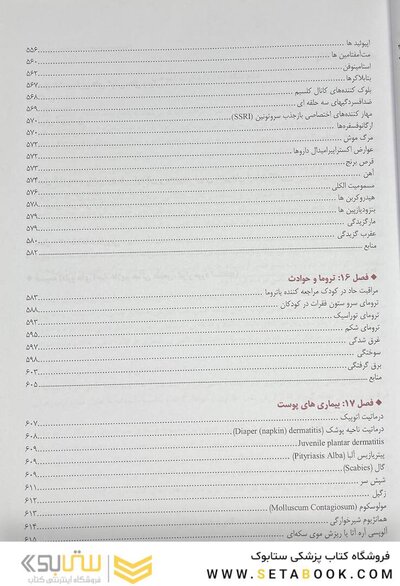 اپیوئید ها ۵۵۶
مت‌آمفتامین ها ۵۶۰
استامینوفن ۵۶۲
بتابلاکرها ۵۶۷
بلوک کننده‌های کانال کلسیم ۵۶۸
ضدافسردگیهای سه حلقه ای ۵۶۹
مهار کننده‌های اختصاصی بازجذب سروتونین (SSRI) ۵۷۰
ارگانوفسفره‌ها ۵۷۰
مرگ موش ۵۷۲
عوارض اکستراپیرامیدال داروها ۵۷۲
قرص برنج ۵۷۳
آهن ۵۷۴
مسمومیت الکلی ۵۷۶
هیدروکربن ها ۵۷۸
بنزودیازپین ها ۵۷۹
مارگزیدگی ۵۷۹
عقرب گزیدگی ۵۸۰
منابع ۵۸۲
◆ فصل ۱۶: تروما و حوادث
مراقبت حاد در کودک مراجعه کننده باتروما ۵۸۳
ترومای سرو ستون فقرات در کودکان ۵۸۸
ترومای توراسیک ۵۹۳
ترومای شکم ۵۹۵
غرق شدگی ۵۹۷
سوختگی ۵۹۸
برق گرفتگی ۶۰۳
منابع ۶۰۵
◆ فصل ۱۷: بیماری های پوست
درماتیت آتوپیک ۶۰۷
درماتیت ناحیه پوشک (Diaper (napkin) dermatitis) ۶۰۸
Juvenile plantar dermatitis ۶۰۹
پیتریازیس آلبا (Pityriasis Alba) ۶۰۹
گال (Scabies) ۶۰۹
شپش سر ۶۱۱
زگیل ۶۱۲
مولوسکوم (Molluscum Contagiosum) ۶۱۳
همانژیوم شیرخوارگی ۶۱۴
آلوپسی آره آتا یا ریزش موی سکه‌ای ۶۱۸
فروشگاه کتاب پزشکی ستابوک
WWW.SETABOOK.COM
ستابوک
فروشگاه اینترنتی کتاب